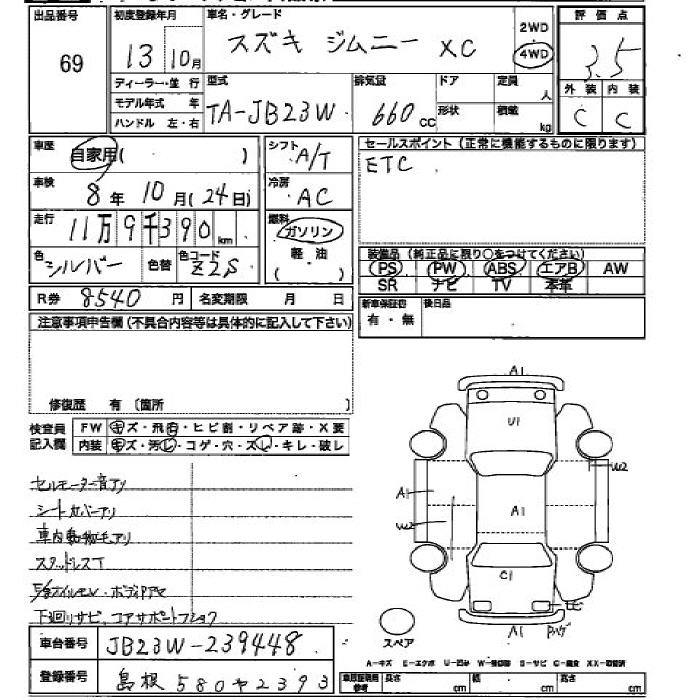 出品番号
69
初度登録年月
13 10月
車名・グレード
スズキ ジムニー XC
2WD
4WD
評価点
3.5
外装 内装
C C
ディーラー・並行
モデル年式 年
ハンドル 左・右
型式
TA-JB23W
排気量
660 CC
ドア
形状
定員
人
積載
kg
車歴
自家用( )
車検
8年 10月(24日)
走行
11万9千390 km
色
シルバー
色替
色コード
Z2S
シフト
A/T
冷房
AC
燃料
ガソリン
軽油
( )
セールスポイント(正常に機能するものに限ります)
ETC
装備品(純正品に限り○をつけてください)
PS PW ABS エアB AW
SR ナビ TV 本革
R券 8540 円
名変期限 月 日
新車保証書
有・無
後日品
注意事項申告欄(不具合内容等は具体的に記入して下さい)
修復歴 有(箇所 )
検査員
記入欄
FW キズ・飛石・ヒビ割・リペア跡・X要
内装 キズ・汚レ・コゲ・穴・スレ・キレ・破レ
セルモーター音アリ
シートカバーアリ
車内動物毛アリ
スタッドレスT
下廻リサビ、コアサポートフショク
車台番号 JB23W-239448
登録番号 島根 580ヤ2393
A1
U1
W2
A1
W2
A1
C1
A1
スペア
A-キズ E-エクボ U-凹み W-補修跡 S-サビ C-腐食 XX-交換済
長さ cm 幅 cm 高さ cm